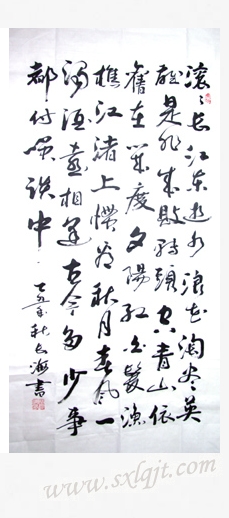 滚〻长江东逝水浪花淘尽英
雄是非成败转头空青山依
舊在几度夕陽红白髮渔
樵江渚上惯看秋月春风一
濁酒喜相逢古今多少事
都付笑谈中
秋长海書
www.sxlqjt.com